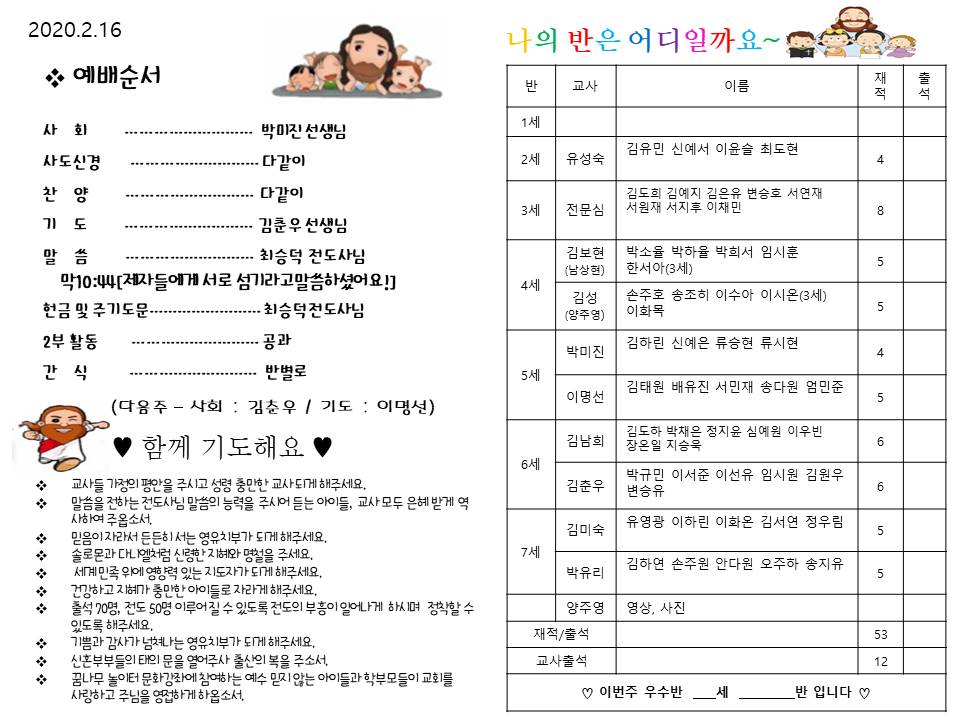 2020.2.16
❖ 예배순서
사 회 ---------------------------- 박미진선생님
사도신경 ---------------------------- 다같이
찬 양 ---------------------------- 다같이
기 도 ---------------------------- 김춘우선생님
말 씀 ---------------------------- 최승덕 전도사님
막10:44[제자들에게 서로 섬기라고말씀하셨어요!]
헌금 및 주기도문------------------------ 최승덕전도사님
2부 활동 ---------------------------- 공과
간 식 ---------------------------- 반별로
(다음주 – 사회 : 김춘우 / 기도 : 이명선)
♥ 함께 기도해요 ♥
❖ 교사들 가정의 평안을 주시고 성령 충만한 교사 되게 해주세요.
❖ 말씀을 전하는 전도사님 말씀의 능력을 주시어 듣는 아이들, 교사 모두 은혜 받게 역
사하여 주옵소서.
❖ 믿음이 자라서 든든히 서는 영유치부가 되게 해주세요.
❖ 솔로몬과 다니엘처럼 신령한 지혜와 명철을 주세요.
❖ 세계 민족 위에 영향력 있는 지도자가 되게 해주세요.
❖ 건강하고 지혜가 충만한 아이들로 자라게 해주세요.
❖ 출석 70명, 전도 50명 이루어 질 수 있도록 전도의 부흥이 일어나게 하시며 정착할 수
있도록 해주세요.
❖ 기쁨과 감사가 넘쳐나는 영유치부가 되게 해주세요.
❖ 신혼부부들의 태의 문을 열어주사 출산의 복을 주소서.
❖ 꿈나무 놀이터 문화강좌에 참여하는 예수 믿지 않는 아이들과 학부모들이 교회를
사랑하고 주님을 영접하게 하옵소서.
나의 반은 어디일까요~
반 교사 이름 재적 출석
1세
2세 유성숙 김유민 신예서 이윤슬 최도현 4
3세 전문심 김도희 김예지 김은유 변승호 서연재
서원재 서지후 이채민 8
4세 김보현 (남상현) 박소율 박하율 박희서 임시훈
한서아(3세) 5
김성 (양주영) 손주호 송조히 이수아 이시온(3세)
이화목 5
5세 박미진 김하린 신예은 류승현 류시현 4
이명선 김태원 배유진 서민재 송다원 엄민준 5
6세 김남희 김도하 박채은 정지윤 심예원 이우빈
장온일 지승욱 6
김춘우 박규민 이서준 이선유 임시원 김원우
변승유 6
7세 김미숙 유영광 이하린 이화온 김서연 정우림 5
박유리 김하연 손주원 안다원 오주하 송지유 5
양주영 영상, 사진
재적/출석 53
교사출석 12
♡ 이번주 우수반 ___세 ________반 입니다 ♡